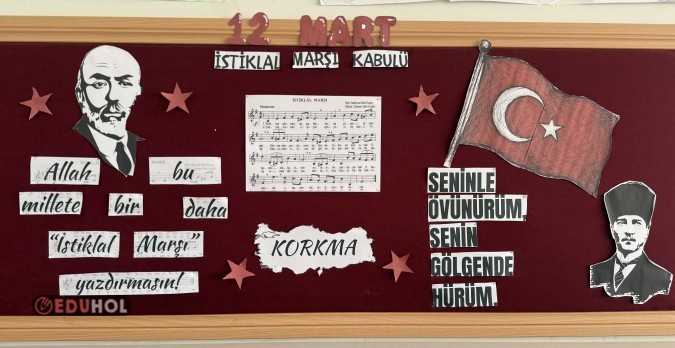 12 MART
İSTİKLAL MARŞI KABULÜ
Allah bu
millete bir daha
"İstiklal Marşı"
yazdırmasın!
EDUHOL
İSTİKLAL MARŞI
KORKMA
SENİNLE
ÖVÜNÜRÜM,
SENİN
GÖLGENDE
HÜRÜM.